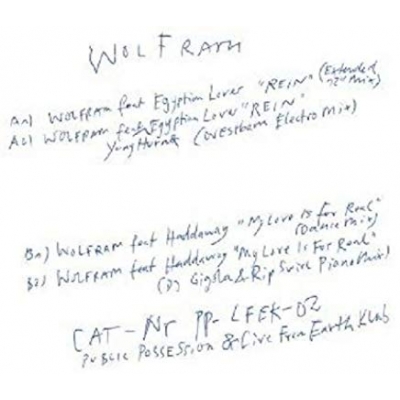 WOLFRAM
A1) WOLFRAM feat Egyptian Lover "REIN" (Extended
12" Mix)
A2) WOLFRAM feat Egyptian Lover "REIN"
Yung Hurn (Westbam Electro Mix)
B1) WOLFRAM feat Haddaway "My Love Is for Real"
(Dance Mix)
B2) WOLFRAM feat Haddaway "My Love Is For Real"
(DJ Gigola & Rip Swirl Piano Mix)
CAT-Nr PP-LFEK-02
PUBLIC POSSESSION & Live From Earth Klub